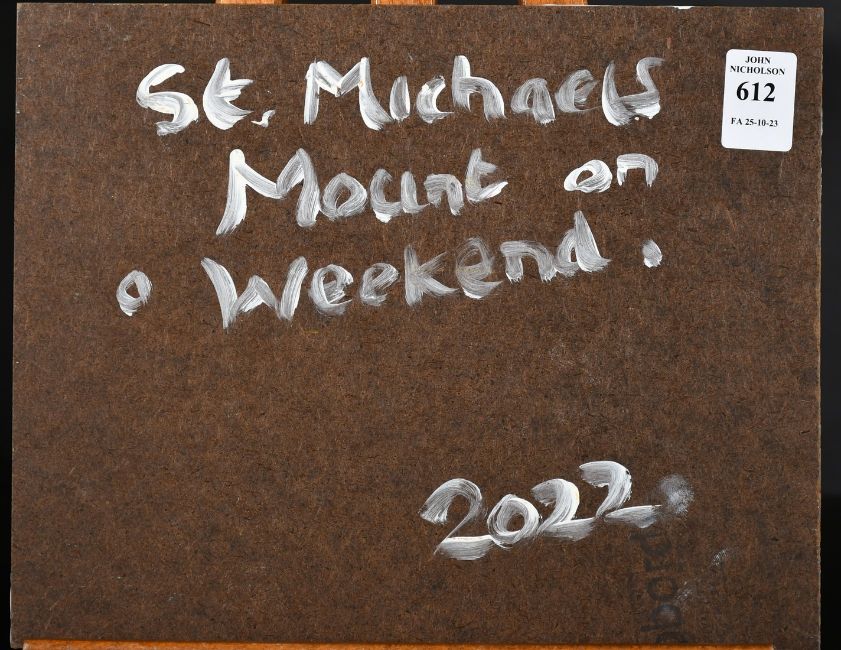 St. Michaels
Mount on
a Weekend.
2022.
JOHN
NICHOLSON
612
FA 25-10-23